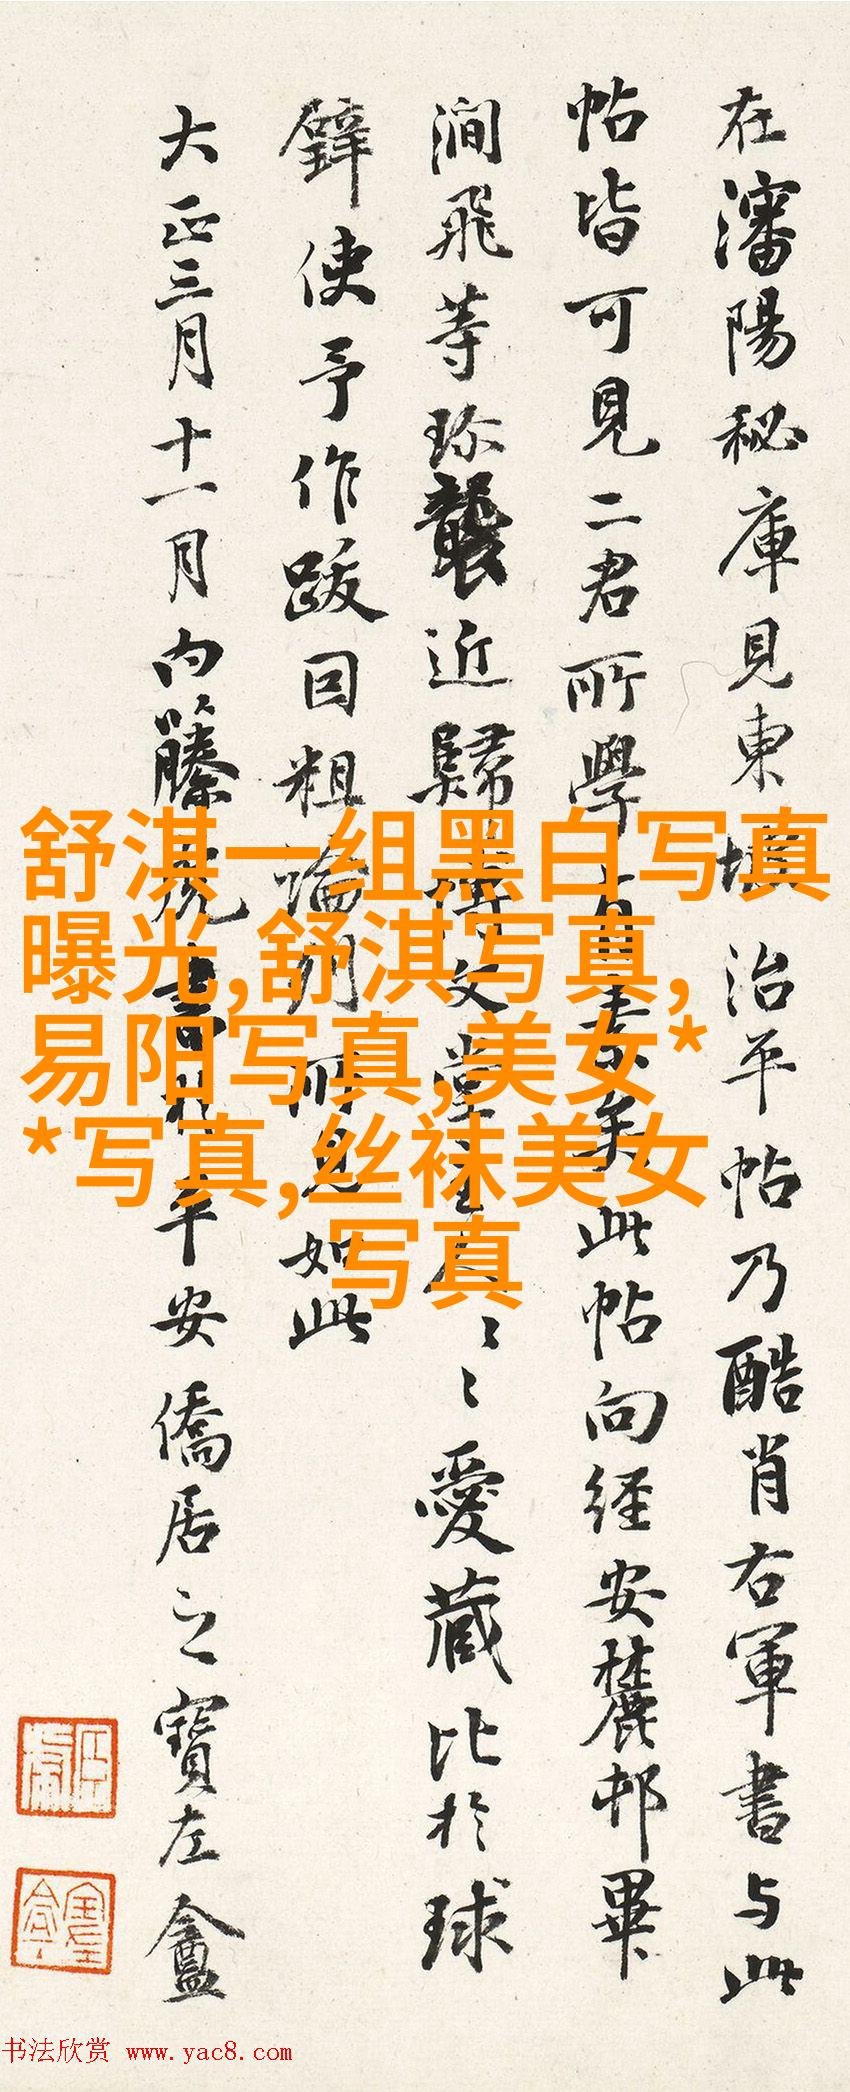 在瀋陽秘庫見東坡治平帖乃酷肖右軍書与此
帖皆可見二君所學有素矣此帖向経安麓邨畢
澗飛等珎襲近歸博文堂主人〻〻愛蔵比於球
使予作跋因粗論所見如此
大正三月十一月内藤虎書於平安僑居之寶左盦
舒淇一组黑白写真
曝光,舒淇写真,
易阳写真,美女*
*写真,丝袜美女
写真
书法欣赏 www.yac8.com